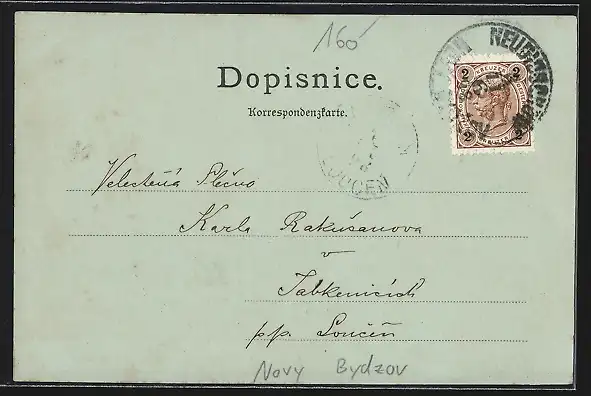 160
Dopisnice.
Korrespondenzkarte.
2 KREUZER 2
2 2
LOUČEŇ
Velectěná Slečno
Karla Rakušanova
v
Jabkenicích
p/p. Loučeň
Novy Bydzov